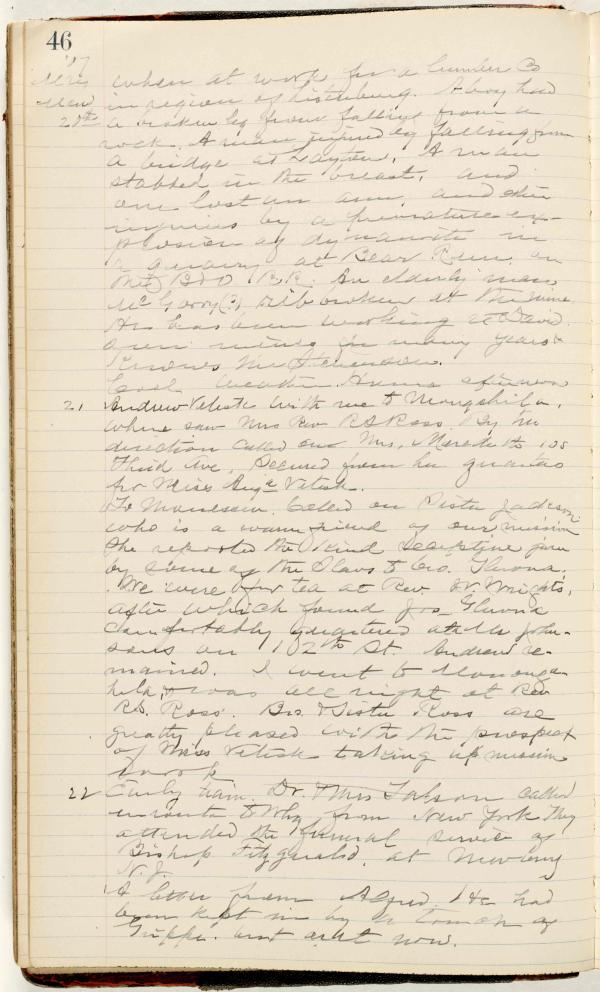 46
'07
when at work for a lumber Co
in region of . A boy had
20th a broken leg from falling from a
rock. A man injured by falling from
a bridge at Layton. A man
stabbed in the breast, and
one lost an arm, and other
injuries by a premature ex-
plosion of dynamite in
a quarry at Bear Run, on
the B & O R.R. An elderly man,
McGorry(?) rib broken at the mine.
He has been working at David-
son mines for many years &
knows Mr Stevenson.
Cool weather. Home afternoon
21 Andrew Velisek with me to Mongahila,
where saw Mrs Rev R S Ross. By her
direction called on Mrs. Meredith 108
Third Ave. Secured from her quarters
for Miss Velisek.
To Monessen. Called on Sister Jackson
who is a warm friend of our mission
She reported the kind reception given
by some of the Slavs to Geo. .
We were for tea at Rev. Dr. Wright's,
after which found Jos
comfortably quartered at Mr John-
sons on 102th St. Andrew re-
mained. I went to Mononga-
hela, & was all night at Rev
R.S. Ross. Bro. & Sister Ross are
greatly pleased with the prospect
of Miss Velisek taking up mission
work
22 Early train. Dr. & Mrs called
enroute to Why from New York They
attended the funeral service of
Bishop Fitzgerald, at
N.J.
A letter from Alfred. He had
been kept in by a touch of
Grippe. but out now.